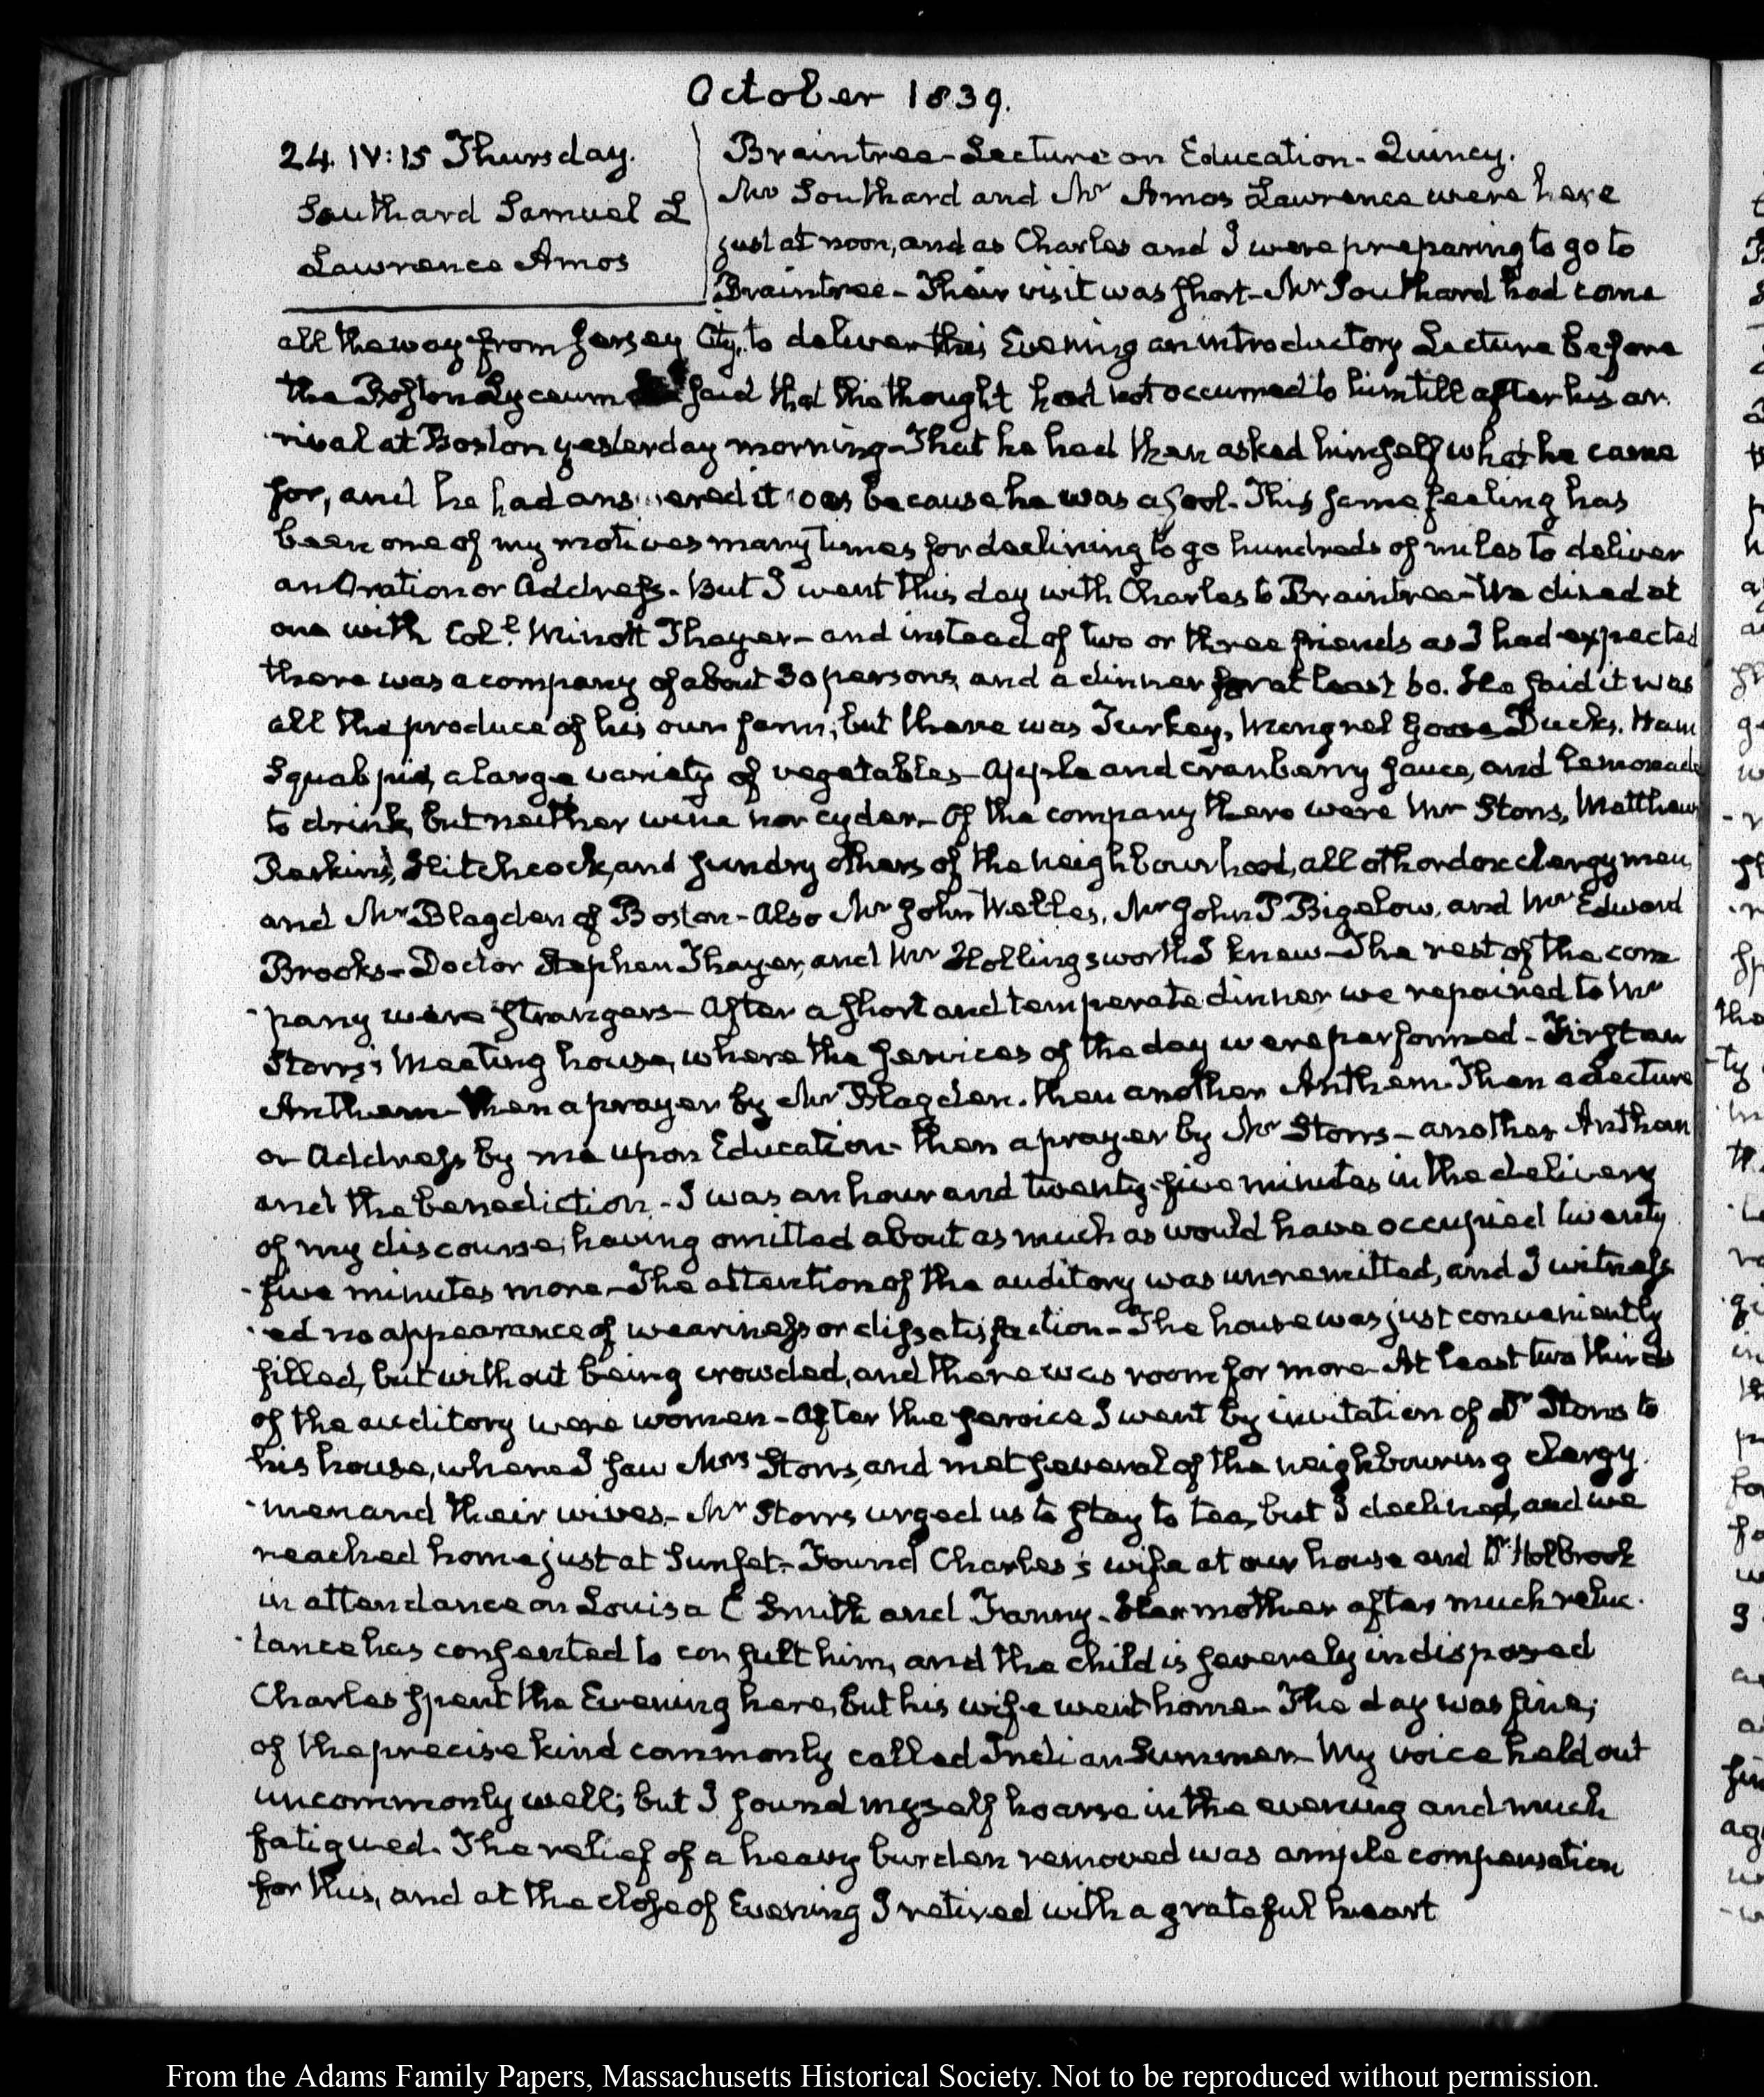 October 1839.
24. IV:15 Thursday.
Southard Samuel L
Lawrence Amos
Braintree - Lecture on Education - Quincy.
Mr Southard and Mr Amos Lawrence were here
just at noon, and as Charles and I were preparing to go to
Braintree - Their visit was short - Mr Southard had come
all the way from Jersey City, to deliver this Evening an introductory Lecture before
the Boston Lyceum said that the thought had not occurred to him till after his ar-
rival at Boston yesterday morning - That he had then asked himself what he came
for, and he had answered it was because he was a fool. This same feeling has
been one of my motives many times for declining to go hundreds of miles to deliver
an Oration or Address. But I went this day with Charles to Braintree - We dined at
one with Coll. Minott Thayer - and instead of two or three friends as I had expected
there was a company of about 30 persons, and a dinner for at least 60. He said it was
all the produce of his own farm; but there was Turkey, Mongrel Goose Ducks. Ham
Squab pie, a large variety of vegetables - Apple and cranberry sauce, and Lemonade
to drink, but neither wine nor cyder - Of the company there were Mr Storrs, Matthews
Perkins, Hitchcock, and sundry others of the neighbourhood, all othordox clergymen,
and Mr Blagden of Boston - Also Mr John Welles, Mr John P Bigelow, and Mr Edward
Brooks - Doctor Stephen Thayer, and Mr Hollingsworth I knew - The rest of the com
-pany were strangers - After a short and temperate dinner we repaired to Mr
Storrs's Meeting house, where the services of the day were performed - First an
Anthem - then a prayer by Mr Blagden. then another Anthem. Then a Lecture
or Address by me upon Education - then a prayer by Mr Storrs - another Anthem
and the benediction. - I was an hour and twenty-five minutes in the delivery
of my discourse; having omitted about as much as would have occupied twenty
-five minutes more - The attention of the auditory was unremitted, and I witness
-ed no appearance of weariness or dissatisfaction - The house was just conveniently
filled, but without being crowded, and there was room for more - At least two thirds
of the auditory were women - After the service I went by invitation of Dr Storrs to
his house, where I saw Mrs Storrs, and met several of the neighbouring clergy
-men and their wives - Mr Storrs urged us to stay to tea, but I declined, and we
reached home just at Sunset - Found Charles's wife at our house and Dr Holbrook
in attendance on Louisa C Smith and Fanny. Her mother after much reluc-
-tance has consented to consult him, and the child is severely indisposed
Charles spent the Evening here, but his wife went home - The day was fine;
of the precise kind commonly called Indian Summer - My voice held out
uncommonly well; but I found myself hoarse in the evening and much
fatigued. The relief of a heavy burden removed was ample compensation
for this, and at the close of Evening I retired with a grateful heart
From the Adams Family Papers, Massachusetts Historical Society. Not to be reproduced without permission.